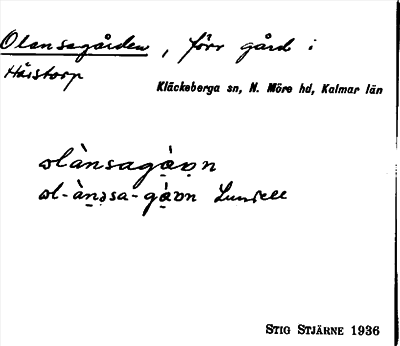 Olansagården, förr gård i
Håistorp
Kläckeberga sn, N. Möre hd, Kalmar län
ωlànsagàv̩n
ωl-àn̠ə̠sa-gàvn Lundell
STIG STJÄRNE 1936